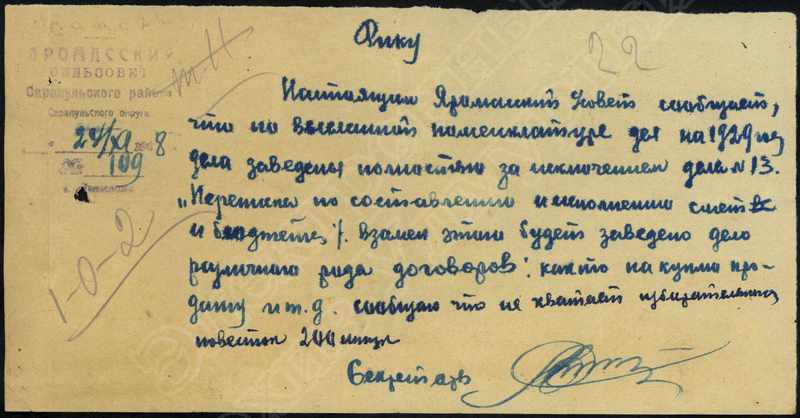 Рику
22
ЯРОМАССКИЙ
СЕЛЬСОВЕТ
Сарапульского района
Сарапульского округа
24/XI 1928
№ 109
1-0-2
Настоящим Яромаский Совет сообщает,
что по высланной номенклатуре дел на 1929 год
дела заведены полностью за исключением дела N 13.
„Переписка по составлению и исполнению смет
и бюджета, взамен этого будет заведено дело
различного рода договоров: как то на куплю про-
дажу и т.д. сообщаю что не хватает избирательных
повесток 200 штук
Секретарь